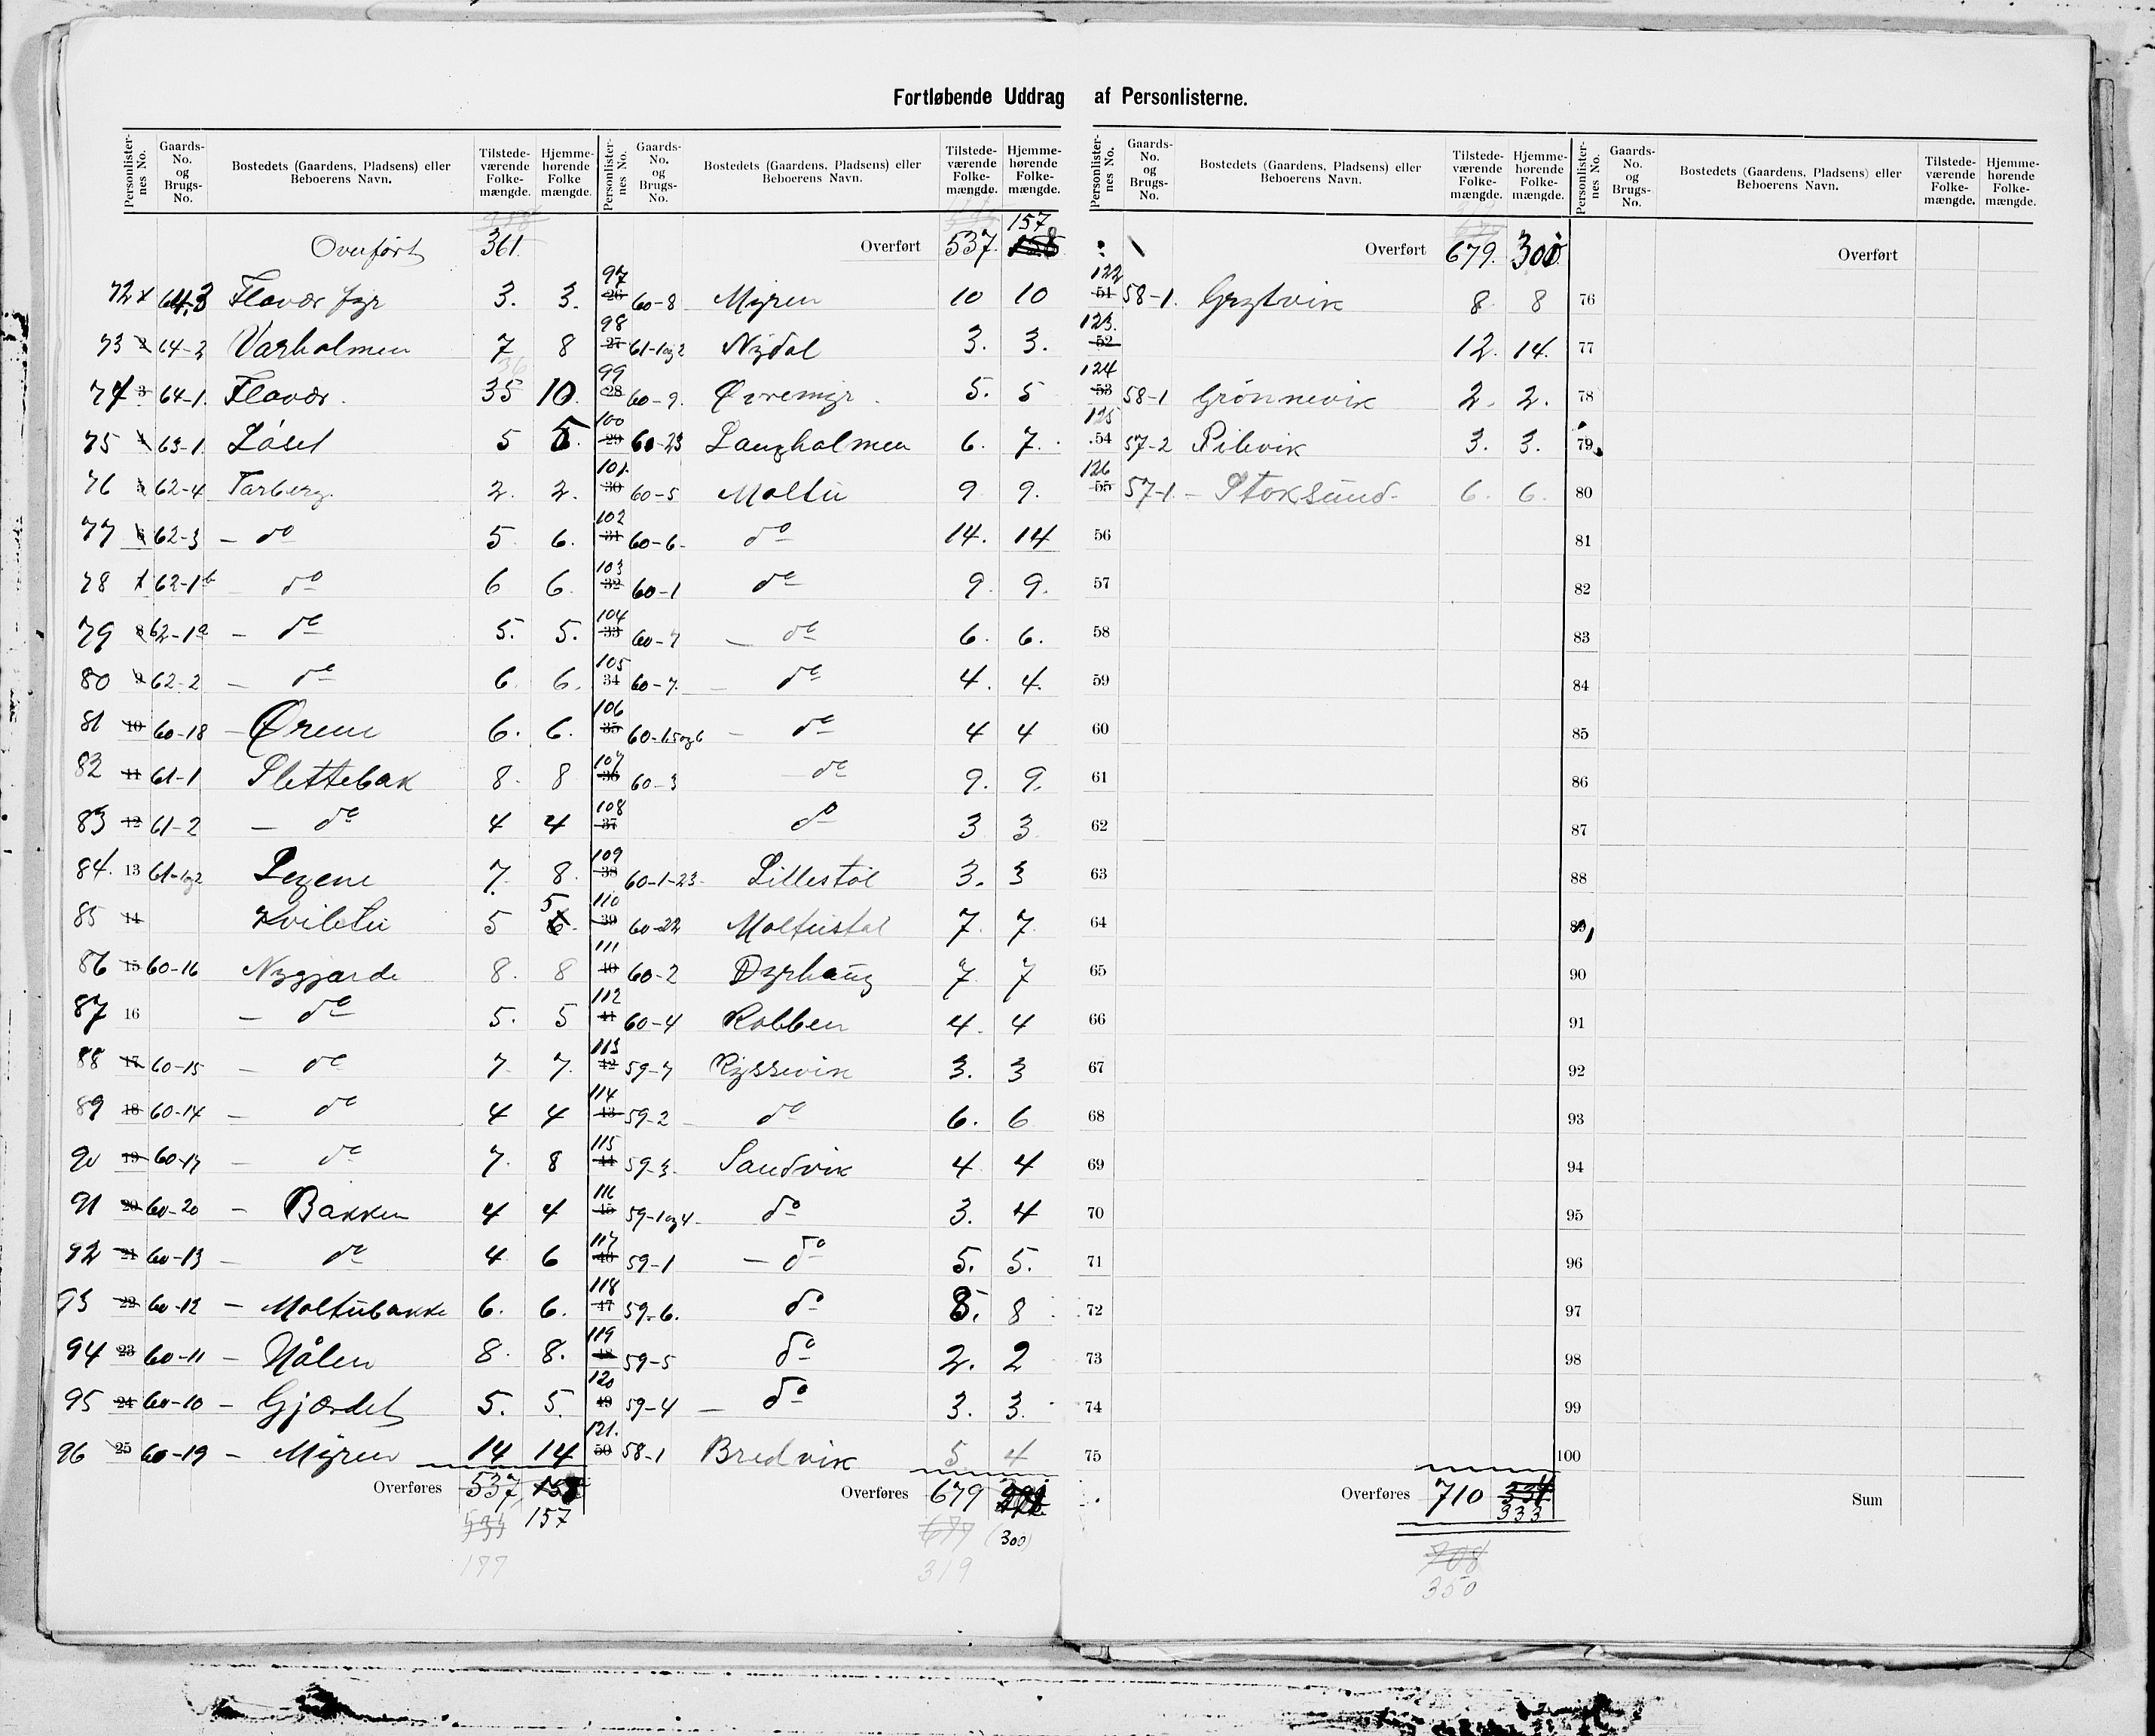 Fortløbende Uddrag af Personlisterne.
Personlisternes No. Gaards-No. og Brugs-No. Bostedets (Gaardens, Pladsens) eller Beboerens Navn. Tilstedeværende Folkemængde. Hjemmehørende Folke mængde.
Overført 361
72 1 64,3 Flavær fyr 3. 3.
73 2 64-2 Varholmen 7 8
74 3 64-1. Flavær. 35 10.
75 4 63-1 Løset 5 5.
76 5 62-4 Tarberg. 2. 2.
77 6 62-3 — do 5 6.
78 7 62-1b do 6 6.
79 8 62-1a — do 5. 5.
80 9 62-2 — do 6. 6.
81 10 60-18 — Ørene 6. 6.
82 11 61-1 Slettebak 8. 8
83 12 61-2 — do 4 4
84. 13 61-1og2 7. 8.
85 14 Kviletu 5 5 6.
86 15 60-16 Nygjærde 8. 8
87 16 — do 5. 5
88 17 60-15 — do 7. 7.
89 18 60-14 — do 4 4
90 19 60-17 — do 7. 8
91 20 60-20 — Bakken 4 4
92 21 60-13 — do 4 6
93 22 60-12 — Moltubakke 6. 6.
94 23 60-11 — Hålen 8. 8.
95 24 60-10 — Gjærdet 5. 5.
96 25 60-19 — Myren 14 14
Overføres 537 158
535 157
177
Personlisternes No. Gaards-No. og Brugs-No. Bostedets (Gaardens, Pladsens) eller Beboerens Navn. Tilstedeværende Folkemængde. Hjemmehørende Folkemængde.
157
Overført 537. 158
97 26 60-8 Myren 10 10
98 27 61-1og2 Nydal 3. 3.
99 28 60-9. Øvremyr. 5. 5
100 29 60-23 Langholmen 6. 7.
101. 30 60-5 Moltu 9 9.
102 31 60-6- do 14. 14
103 32 60-1 do 9. 9.
104 33 60-7 — do 6. 6.
105 34 60-7. — do 4. 4.
106 35 60-15og6 — do 4 4
107 36 60-3 — do 9. 9.
108 37 do 3 3.
109 38 60-1-23- Lillestøl 3. 3
110 39 60-22 Moltustøl 7. 7.
111 40 60-2 Dyrhaug 7 7
112 41 60-4 Kobben 4. 4
113 42 59-7 Ryssevik 3. 3
114 43 59-2 — do 6. 6
115 44 59-3. Sandvik 4 4
116 45 59-1og4- do 3. 4
117 46 59-1 — do 5. 5.
118 47 59-6. do 8. 8
119 48 59-5 do 2. 2
120 49 59-4 — do 3. 3.
121. 50 58-1 Bredvik 5. 4
Overføres 679
677 (300)
319
Personlisternes No. Gaards-No. og Brugs-No. Bostedets (Gaardens, Pladsens) eller Beboerens Navn. Tilstedeværende Folkemængde. Hjemmehørende Folkemængde.
Overført 679. 300
122 51 58-1. Grytvik 8. 8
123. 52 12. 14.
124 53 58-1 Grønnevik 2. 2.
125 54 57-2 3. 3.
126 55 57-1 — Stoksund- 6. 6.
56
57
58
59
60
61
62
63
64
65
66
67
68
69
70
71
72
73
74
75
Overføres 710 334
333
708
350
Personlisternes No. Gaards-No. og Brugs-No. Bostedets (Gaardens, Pladsens) eller Beboerens Navn. Tilstedeværende Folkemængde. Hjemmehørende Folkemængde.
Overført
76
77
78
79
80
81
82
83
84
85
86
87
88
89
90
91
92
93
94
95
96
97
98
99
100
Sum